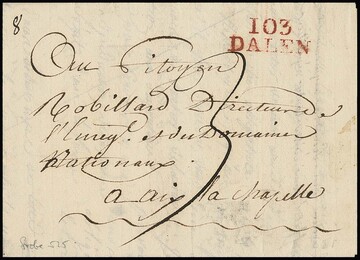 8
103
DALEN
Au Citoyen
Robillard Directeur de
l'Enreg.t et des Domaines
Nationaux
a aix la chapelle